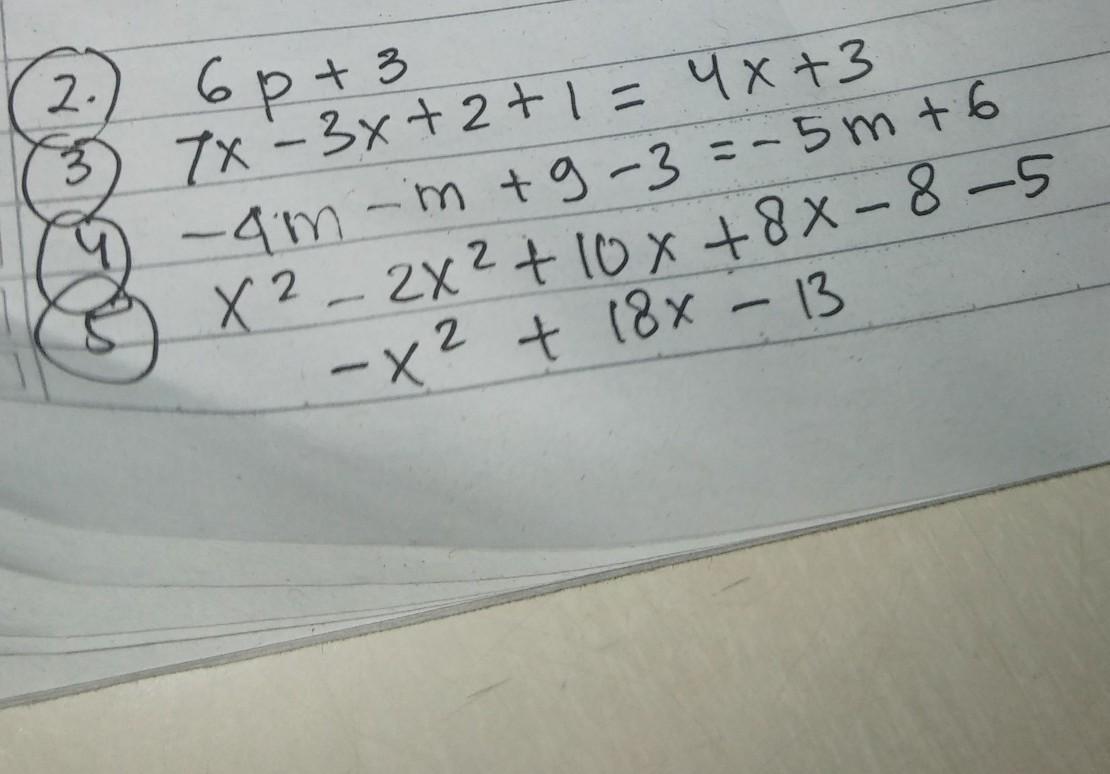 2. 6p + 3
3 7x - 3x + 2 + 1 = 4x + 3
4 -4m - m + 9 - 3 = -5m + 6
5 x² - 2x² + 10x + 8x - 8 - 5
-x² + 18x - 13